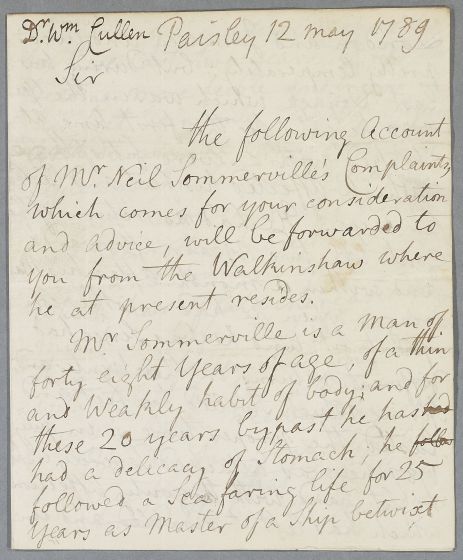 Dr. Wm. Cullen Paisley 12 may 1789
Sir
the following Account
of Mr. Neil Sommerville's Complaints,
which comes for your consideration
and advice, will be forwarded to
you from the Walkinshaw where
he at present resides.
Mr Sommerville is a Man of
forty eight Years of age, of a thin
and Weakly habit of body; and for
these 20 years bypast he has
had a delicacy of Stomach; he
followed a Sea faring life for 25
Years as Master of a Ship betwixt